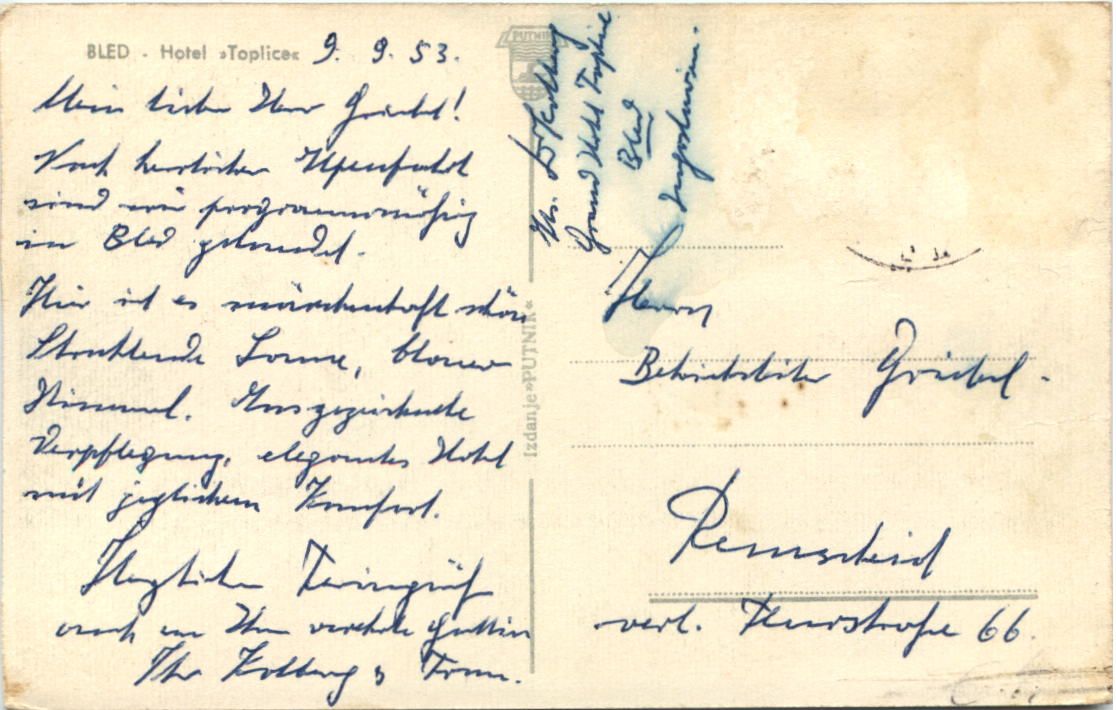 BLED - Hotel »Toplice« 9. 9. 53.
Mein lieber Herr Griebel!
Nach herrlicher Alpenfahrt
sind wir programmäßig
in Bled gelandet.
Hier ist es märchenhaft schön
Strahlende Sonne, blauer
Himmel. Ausgezeichnete
Verpflegung, elegantes Hotel
mit jeglichem Komfort.
Herzlichen Feriengruß
auch an Ihre verehrte Gattin
Ihr Kolberg u Frau.
PUTNIK
Izdanje »PUTNIK«
Kolberg
Grand Hotel Toplice
Bled
Jugoslawien.
Herrn
Betriebsleiter Griebel.
Remscheid
verl. Kurstraße 66.